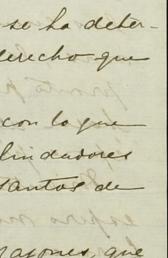 se ha deter-
derecho que
con lo que
lindadores
santos de
razones, que